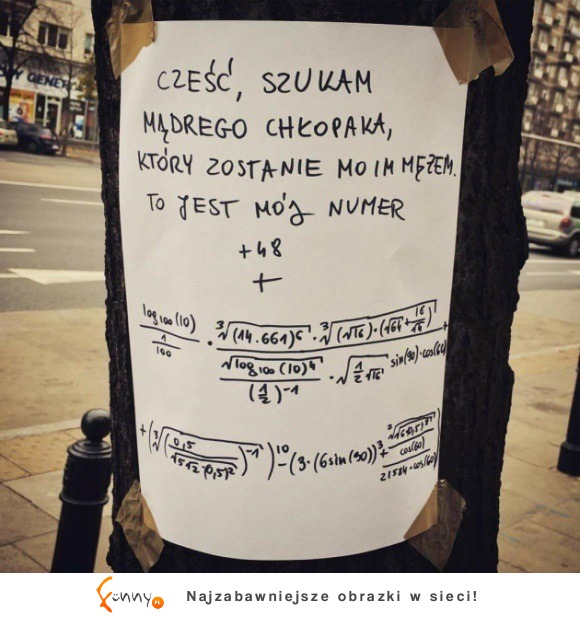 CZEŚĆ, SZUKAM
MĄDREGO CHŁOPAKA,
KTÓRY ZOSTANIE MOIM MĘŻEM.
TO JEST MÓJ NUMER
+48
+
log₁₀₀(10) / (1/100) · ∛(14.661)⁶ · ∛((√16)·(√64+16/16)) / (√log₁₀₀(10)⁴ / (1/2)⁻¹ · √(1/2 √16)) sin(90)·cos(60) +
+(∛(0,5 / √512·(0,5)²)⁻¹)¹⁰-(3·(6sin(90))³+ cos(60) / 21584·cos(60)
Funny.PL
Najzabawniejsze obrazki w sieci!